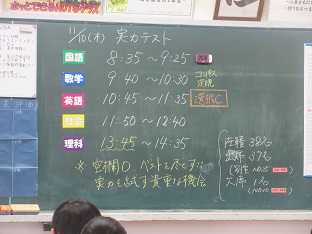 11/10(木) 実力テスト
国語 8:35～9:25
数学 9:40～10:30 コンパス 定規
英語 10:45～11:35 選択C
社会 11:50～12:40
理科 13:45～14:35
※ 空欄0、ベストを尽くす!!
実力を試す貴重な機会
在籍 38名
出席 37名
欠席 1名